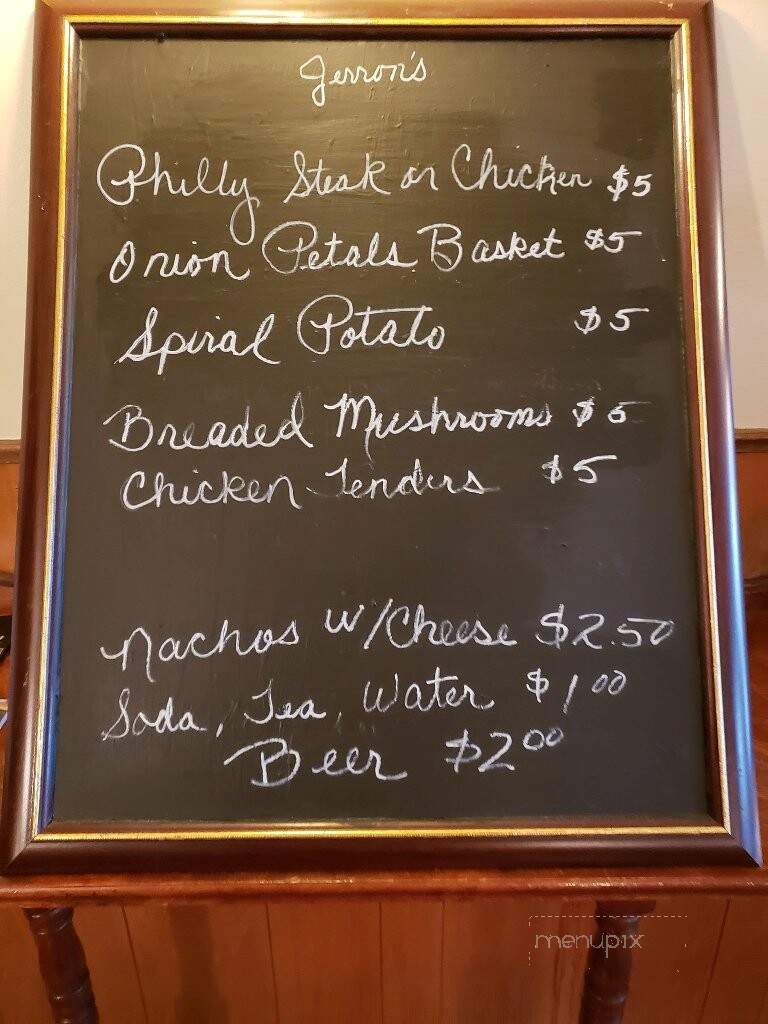 Jerron's
Philly Steak or Chicken $5
Onion Petals Basket $5
Spiral Potato $5
Breaded Mushrooms $5
Chicken Tenders $5
Nachos w/Cheese $2.50
Soda, Tea, Water $1.00
Beer $2.00
menupix